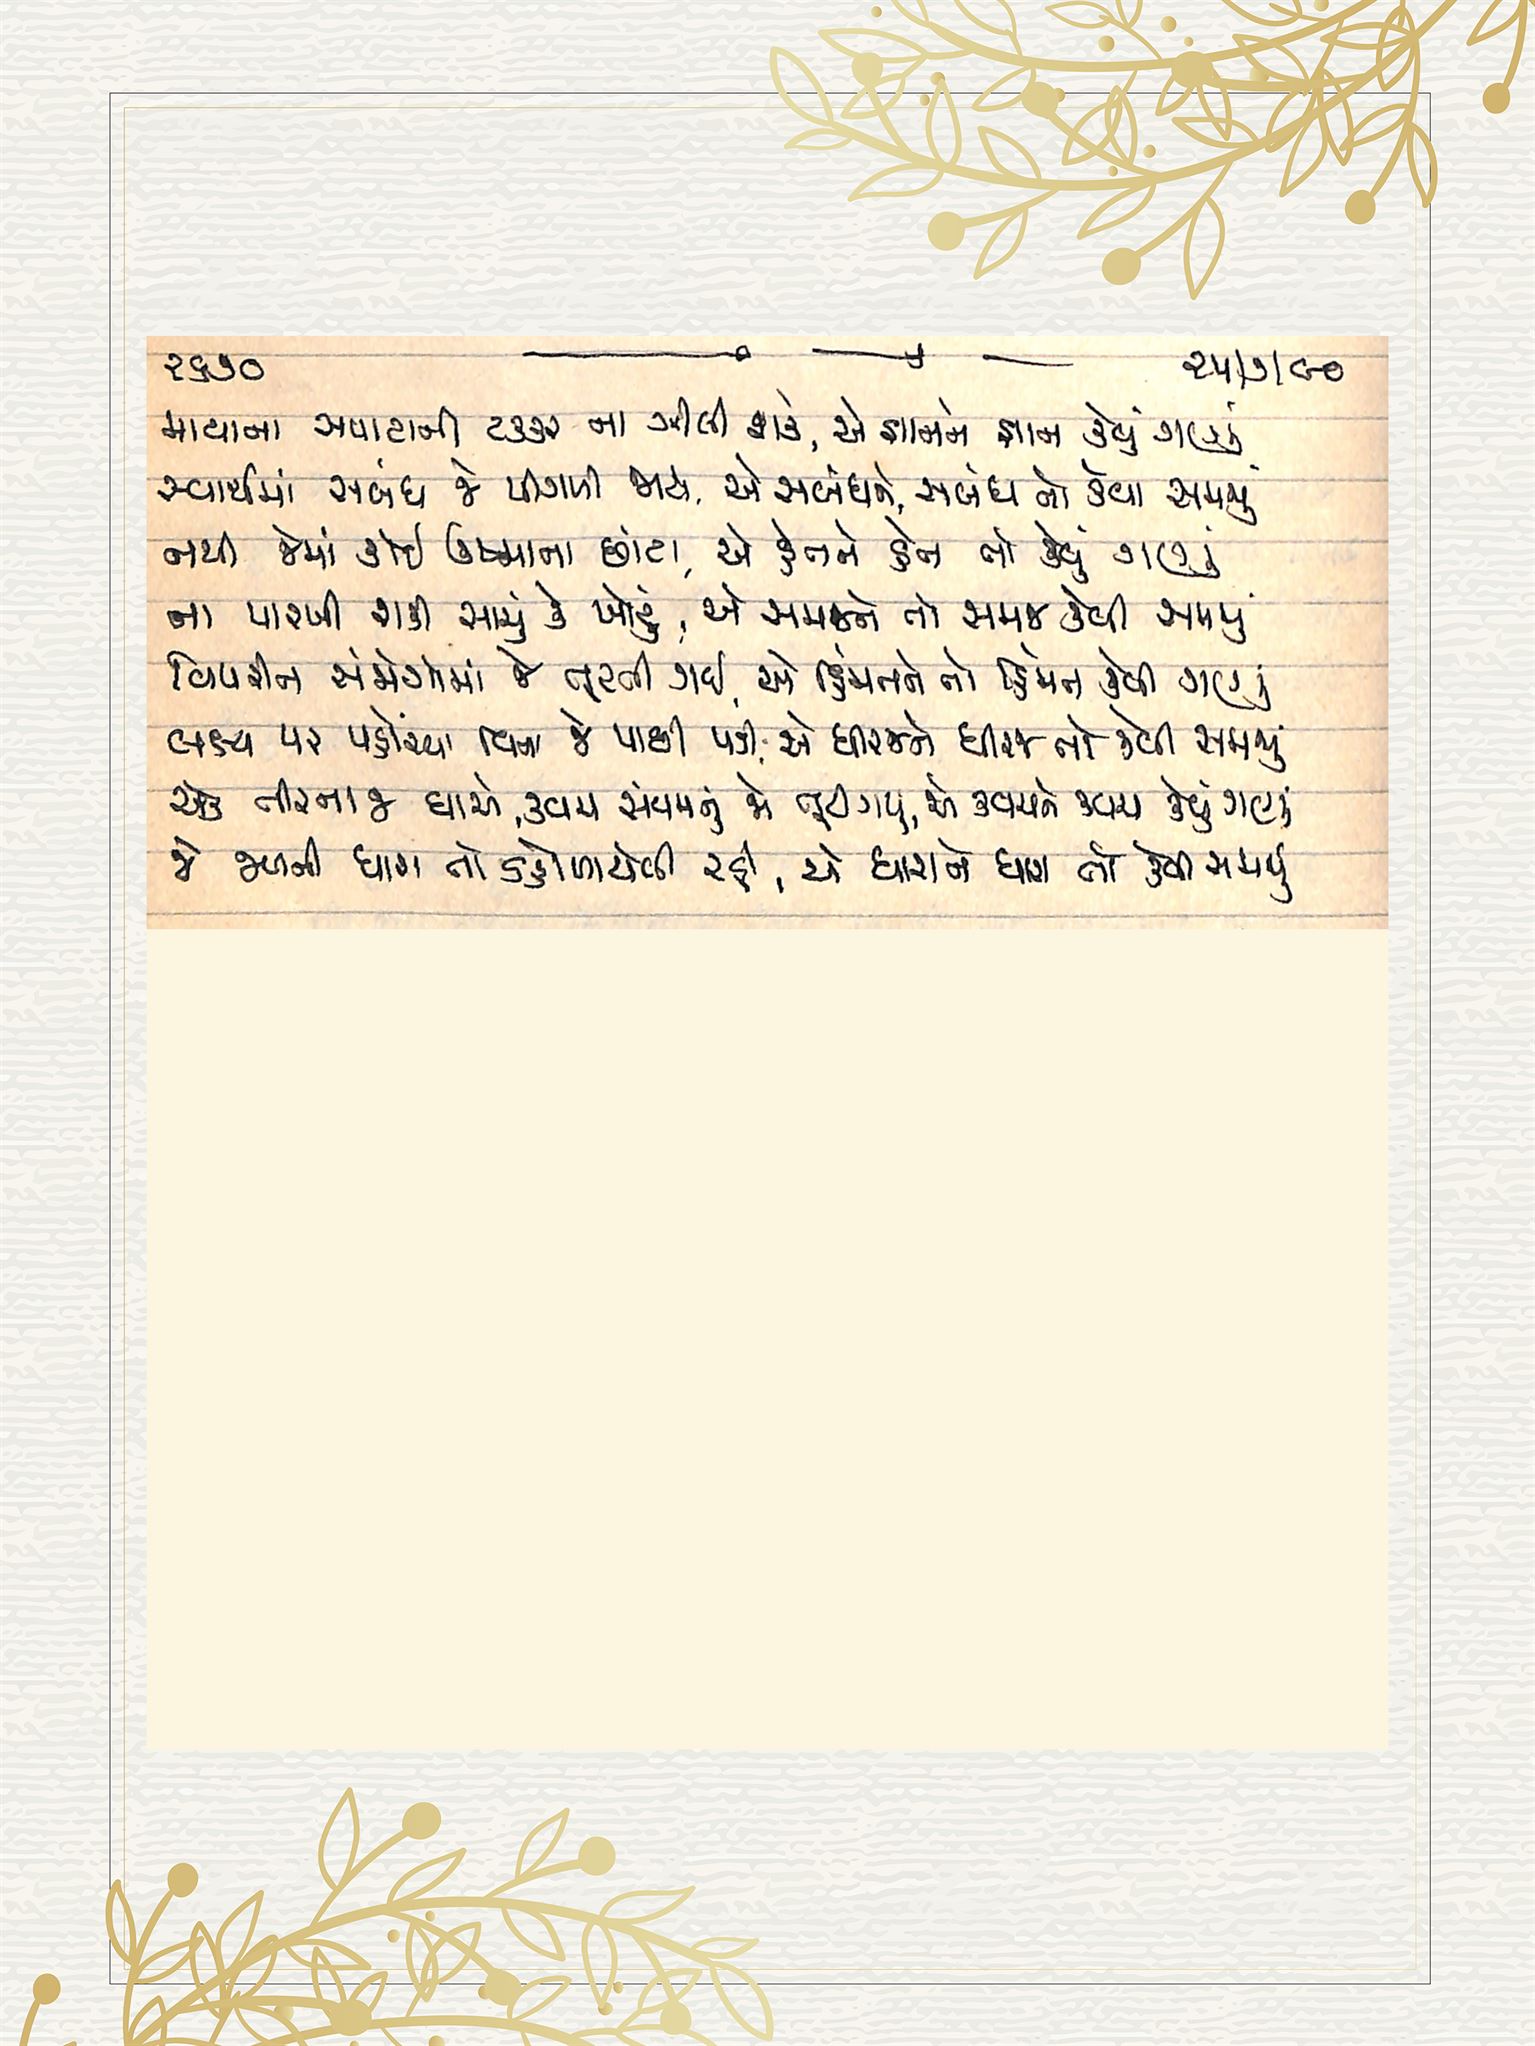 ૨૬૭૦ ૨૫/૭/૯૦
માયાના સપાટાની ટક્કર ના ઝીલી શકે, એ જ્ઞાનને જ્ઞાન કેવું ગણવું
સ્વાર્થમાં સબંધ જે પીગળી જાય, એ સબંધને, સબંધ તો કેવા સમજવું
નથી જેમાં કોઈ ઉષ્માના છાંટા, એ હેતને હેત તો કેવું ગણવું
ના પારખી શકી સાચું કે ખોટું, એ સમજને તો સમજ કેવી સમજવું
વિપરીત સંજોગોમાં જે તૂટતી ગઈ, એ હિંમતને તો હિંમત કેવી ગણવું
લક્ષ્ય પર પહોંચ્યા વિના જે પાછી પડી, એ ધીરજને ધીરજ તો કેવી સમજવું
એક તીરના જ ઘાએ, કવચ સંયમનું જે તૂટી ગયું, એ કવચને કવચ કેવું ગણવું
જે જળની ધારા તો ડહોળાયેલી રહી, એ ધારાને ધારા તો કેવી સમજવું